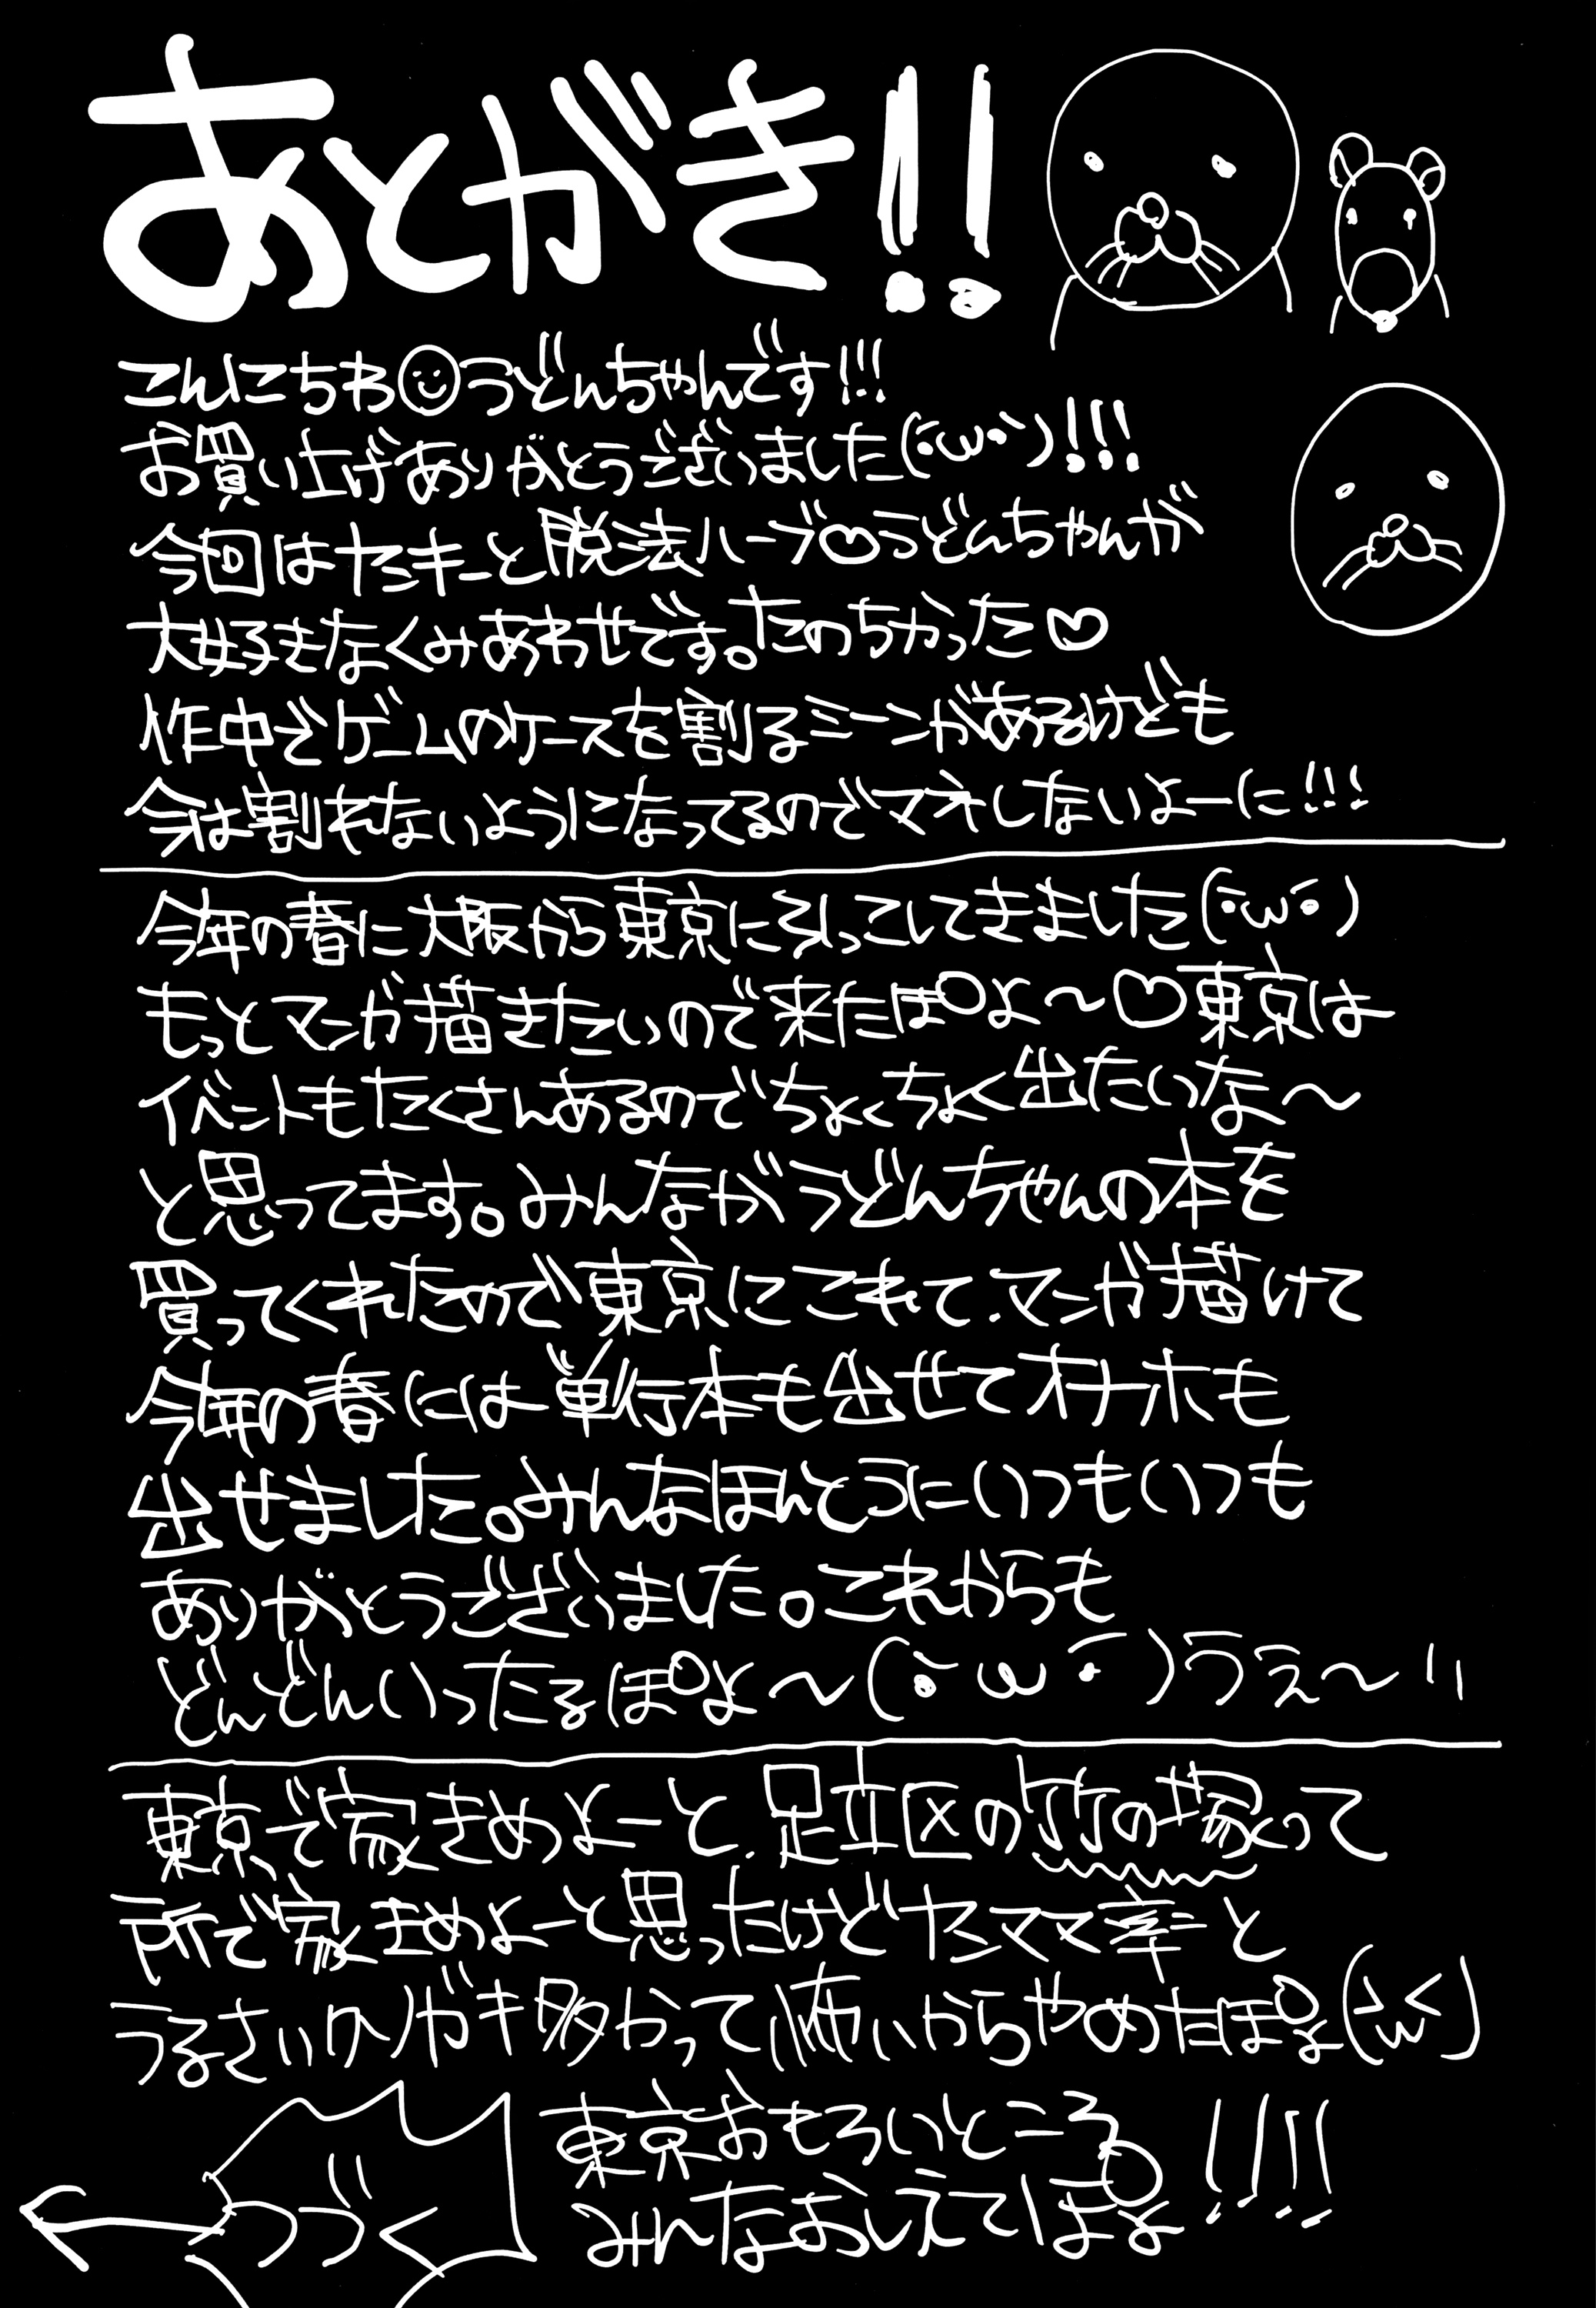 あとがき!!
こんにちわ☺うどんちゃんです!!!
お買い上げありがとうございました(・ω・)!!!
今回はヤンキーと脱法ハーブ♡うどんちゃんが
大好きなくみあわせです。たのちかった♡
作中でゲームのケースを割るシーンがあるけども
今は割れないようになってるのでマネしないよーに!!!
今年の春に大阪から東京に引っこしてきました(・ω・)
もっとマンガ描きたいので来たぽよ～♡東京は
イベントもたくさんあるのでちょくちょく出たいな～
と思ってます。みんながうどんちゃんの本を
買ってくれたので東京にこれて、マンガ描けて
今年の春には単行本も出せてオナホも
出せました。みんなほんとうにいつもいつも
ありがとうございました。これからも
どんどんいったるぽよ～(・ω・)うぇ～!!
東京で家きめよーと、足立区の竹の塚って
所で家きめよーと思ったけどヤンママ率と
うるさいクソガキ多かって怖いからやめたぽよ(>ω<)
東京おもろいところ!!!!
みんなおしえてぽよ
つづく